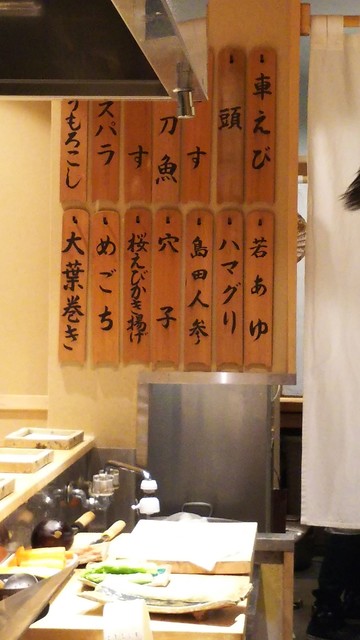 車えび
頭
す
刀魚
す
スパラ
うもろこし
若あゆ
ハマグリ
島田人参
穴子
桜えびかき揚げ
めごち
大葉巻き